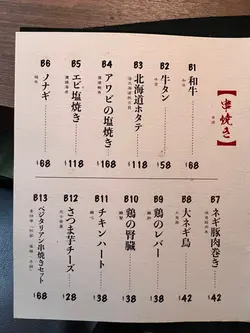 【串焼き】
B1
和牛
$168
B2
牛タン
$58
B3
北海道ホタテ
$118
B4
アワビの塩焼き
$168
B5
エビ塩焼き
$118
B6
ソナギ
$68
B7
ネギ豚肉巻き
$42
B8
大ネギ鳥
$42
B9
鶏のレバー
$38
B10
鶏の腎臓
$38
B11
チキンハート
$38
B12
さつま芋チーズ
$28
B13
ベジタリアン串焼きセット
$68